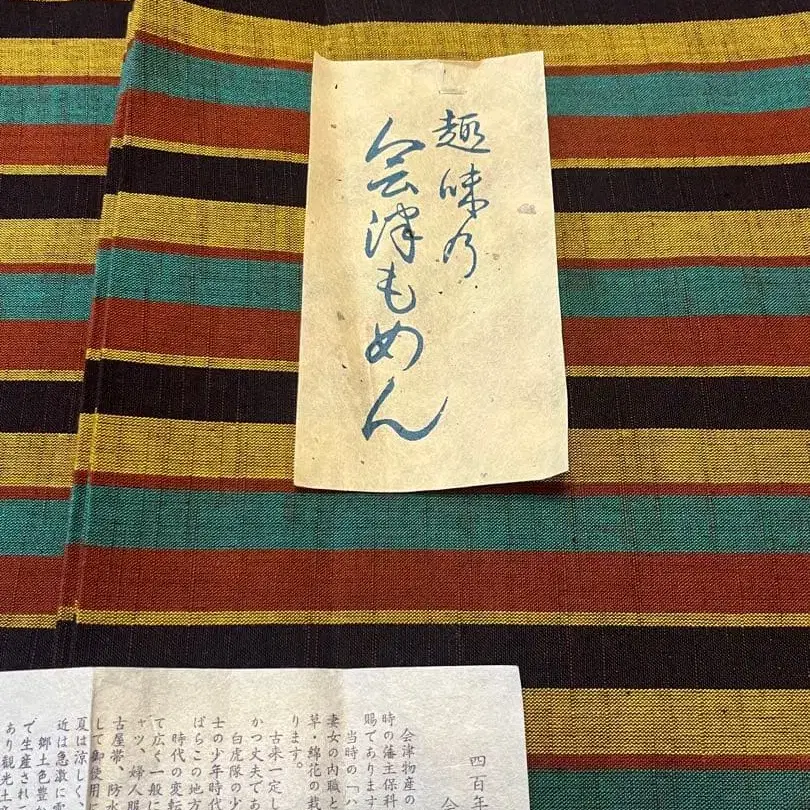 趣味乃
会津もめん
四百年
会
会津物産の
時の藩主保科
賜であります
当時の「ハ
妻女の内職と
草・綿花の栽
ります。
古来一定し
かつ丈夫であ
白虎隊の少
士の少年時代
ばらこの地方
時代の変転
て広く一般に
ャツ、婦人服
古屋帯、防水
して御使用
夏は涼しく、
近は急激に
郷土色豊か
で生産され
あり観光土